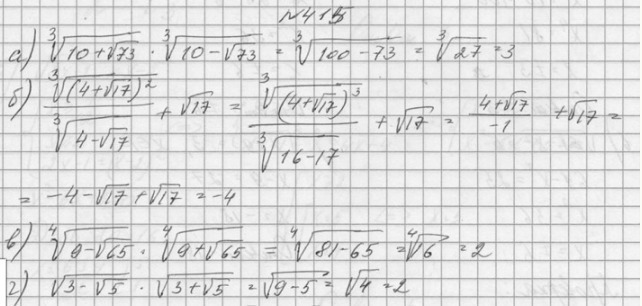 №415
а) ∛(10+√73) · ∛(10-√73) = ∛(100-73) = ∛27 = 3
б) ∛((4+√17)²) / ∛(4-√17) + √17 = ∛((4+√17)³) / ∛(16-17) + √17 = (4+√17)/-1 + √17 =
= -4-√17+√17 = -4
в) ∜(9-√65) · ∜(9+√65) = ∜(81-65) = ∜16 = 2
г) √(3-√5) · √(3+√5) = √(9-5) = √4 = 2